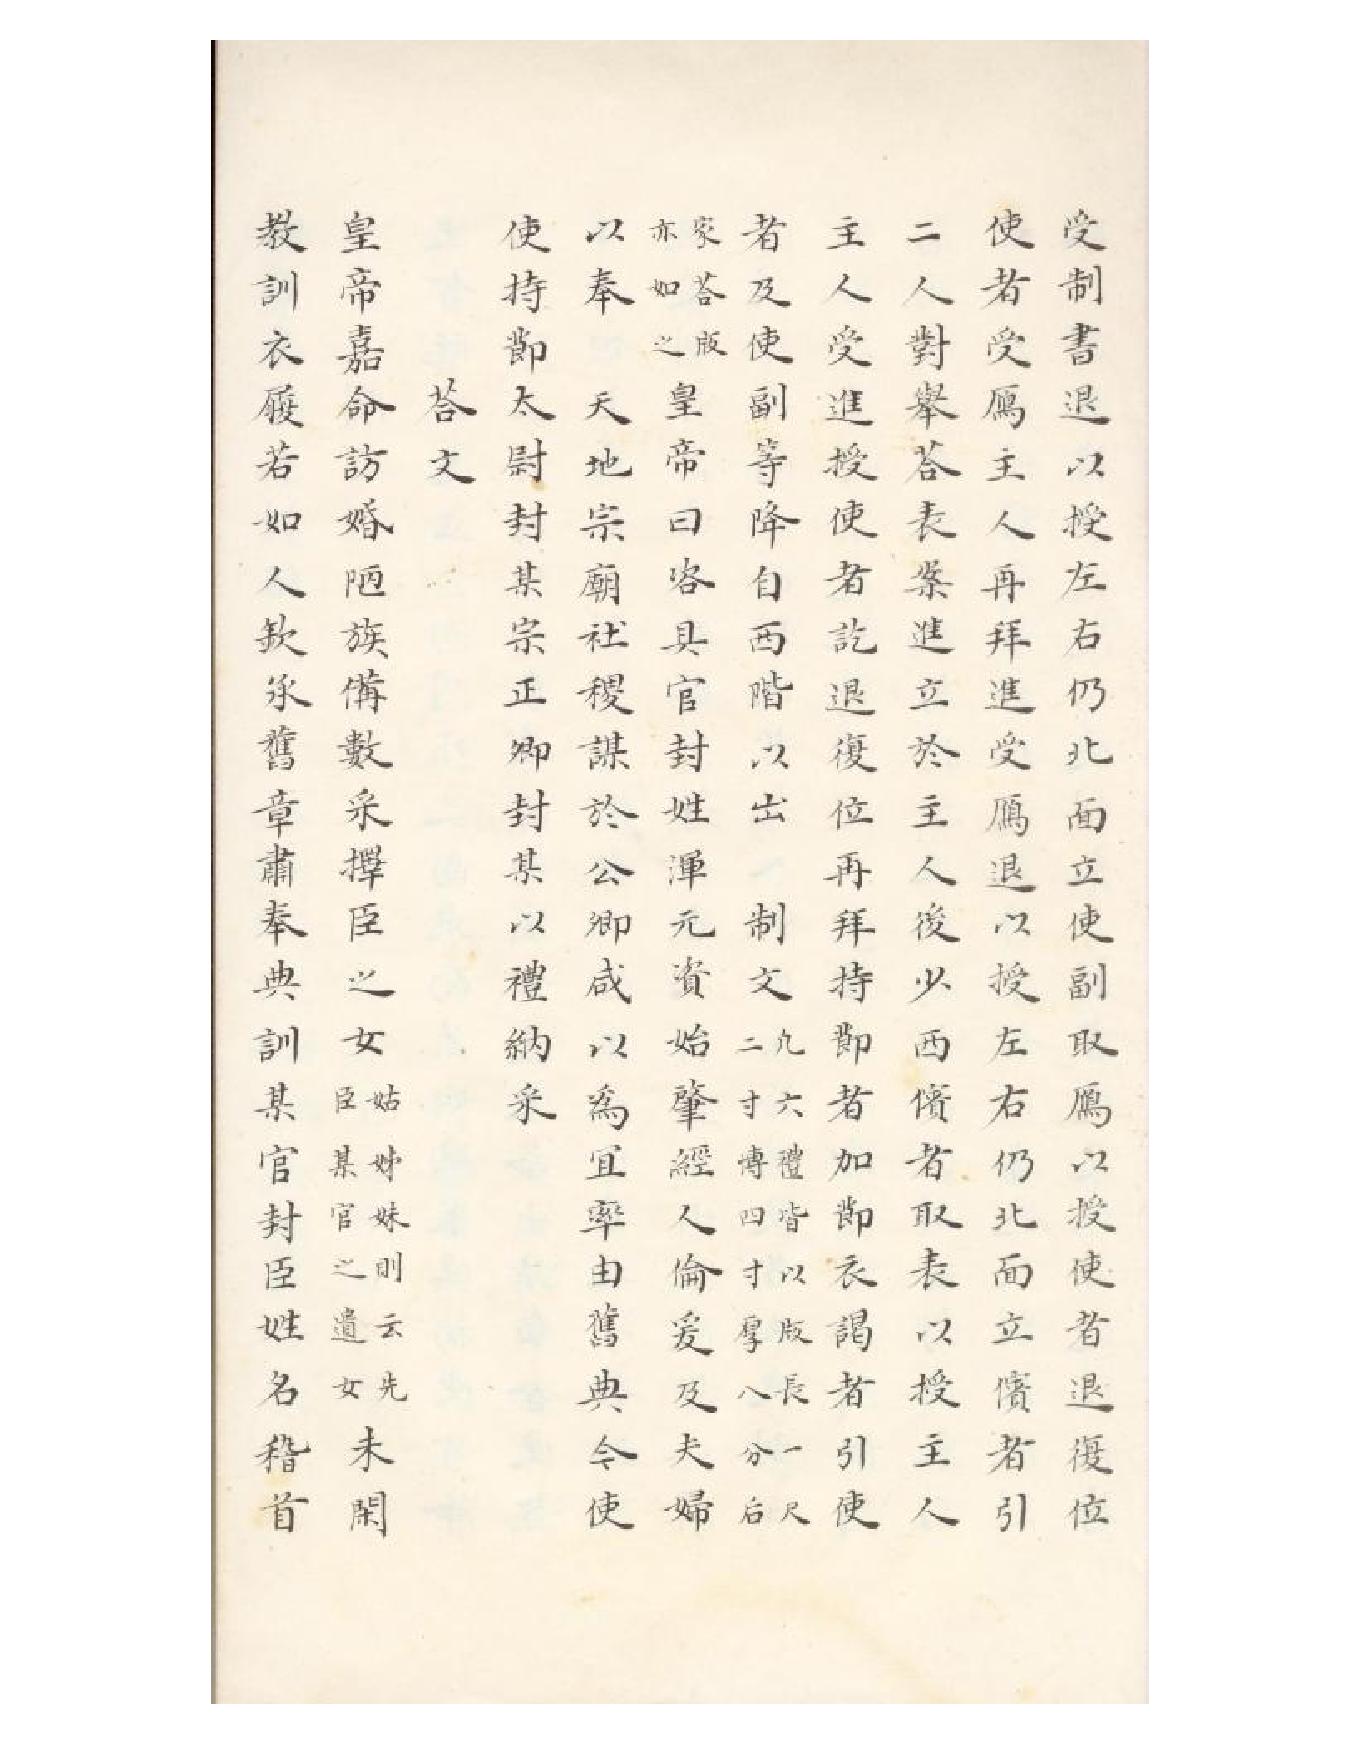 受制書退以授左右仍北面立使副取鴈以授使者退復位
使者受鴈主人再拜進受鴈退以授左右仍北面立儐者引
二人對舉荅表案進立於主人後少西儐者取表以授主人
主人受進授使者訖退復位再拜持節者加節衣謁者引使
者及使副等降自西階以出 制文
凡六禮皆以版長一尺
二寸博四寸厚八分后
家荅版
亦如之
皇帝曰咨具官封姓渾元資始肇經人倫爰及夫婦
以奉 天地宗廟社稷謀於公卿咸以爲宜率由舊典今使
使持節太尉封某宗正卿封某以禮納采
荅文
皇帝嘉命訪婚陋族備數采擇臣之女
姑姊妹則云先
臣某官之遺女
未閑
教訓衣履若如人欽承舊章肅奉典訓某官封臣姓名稽首